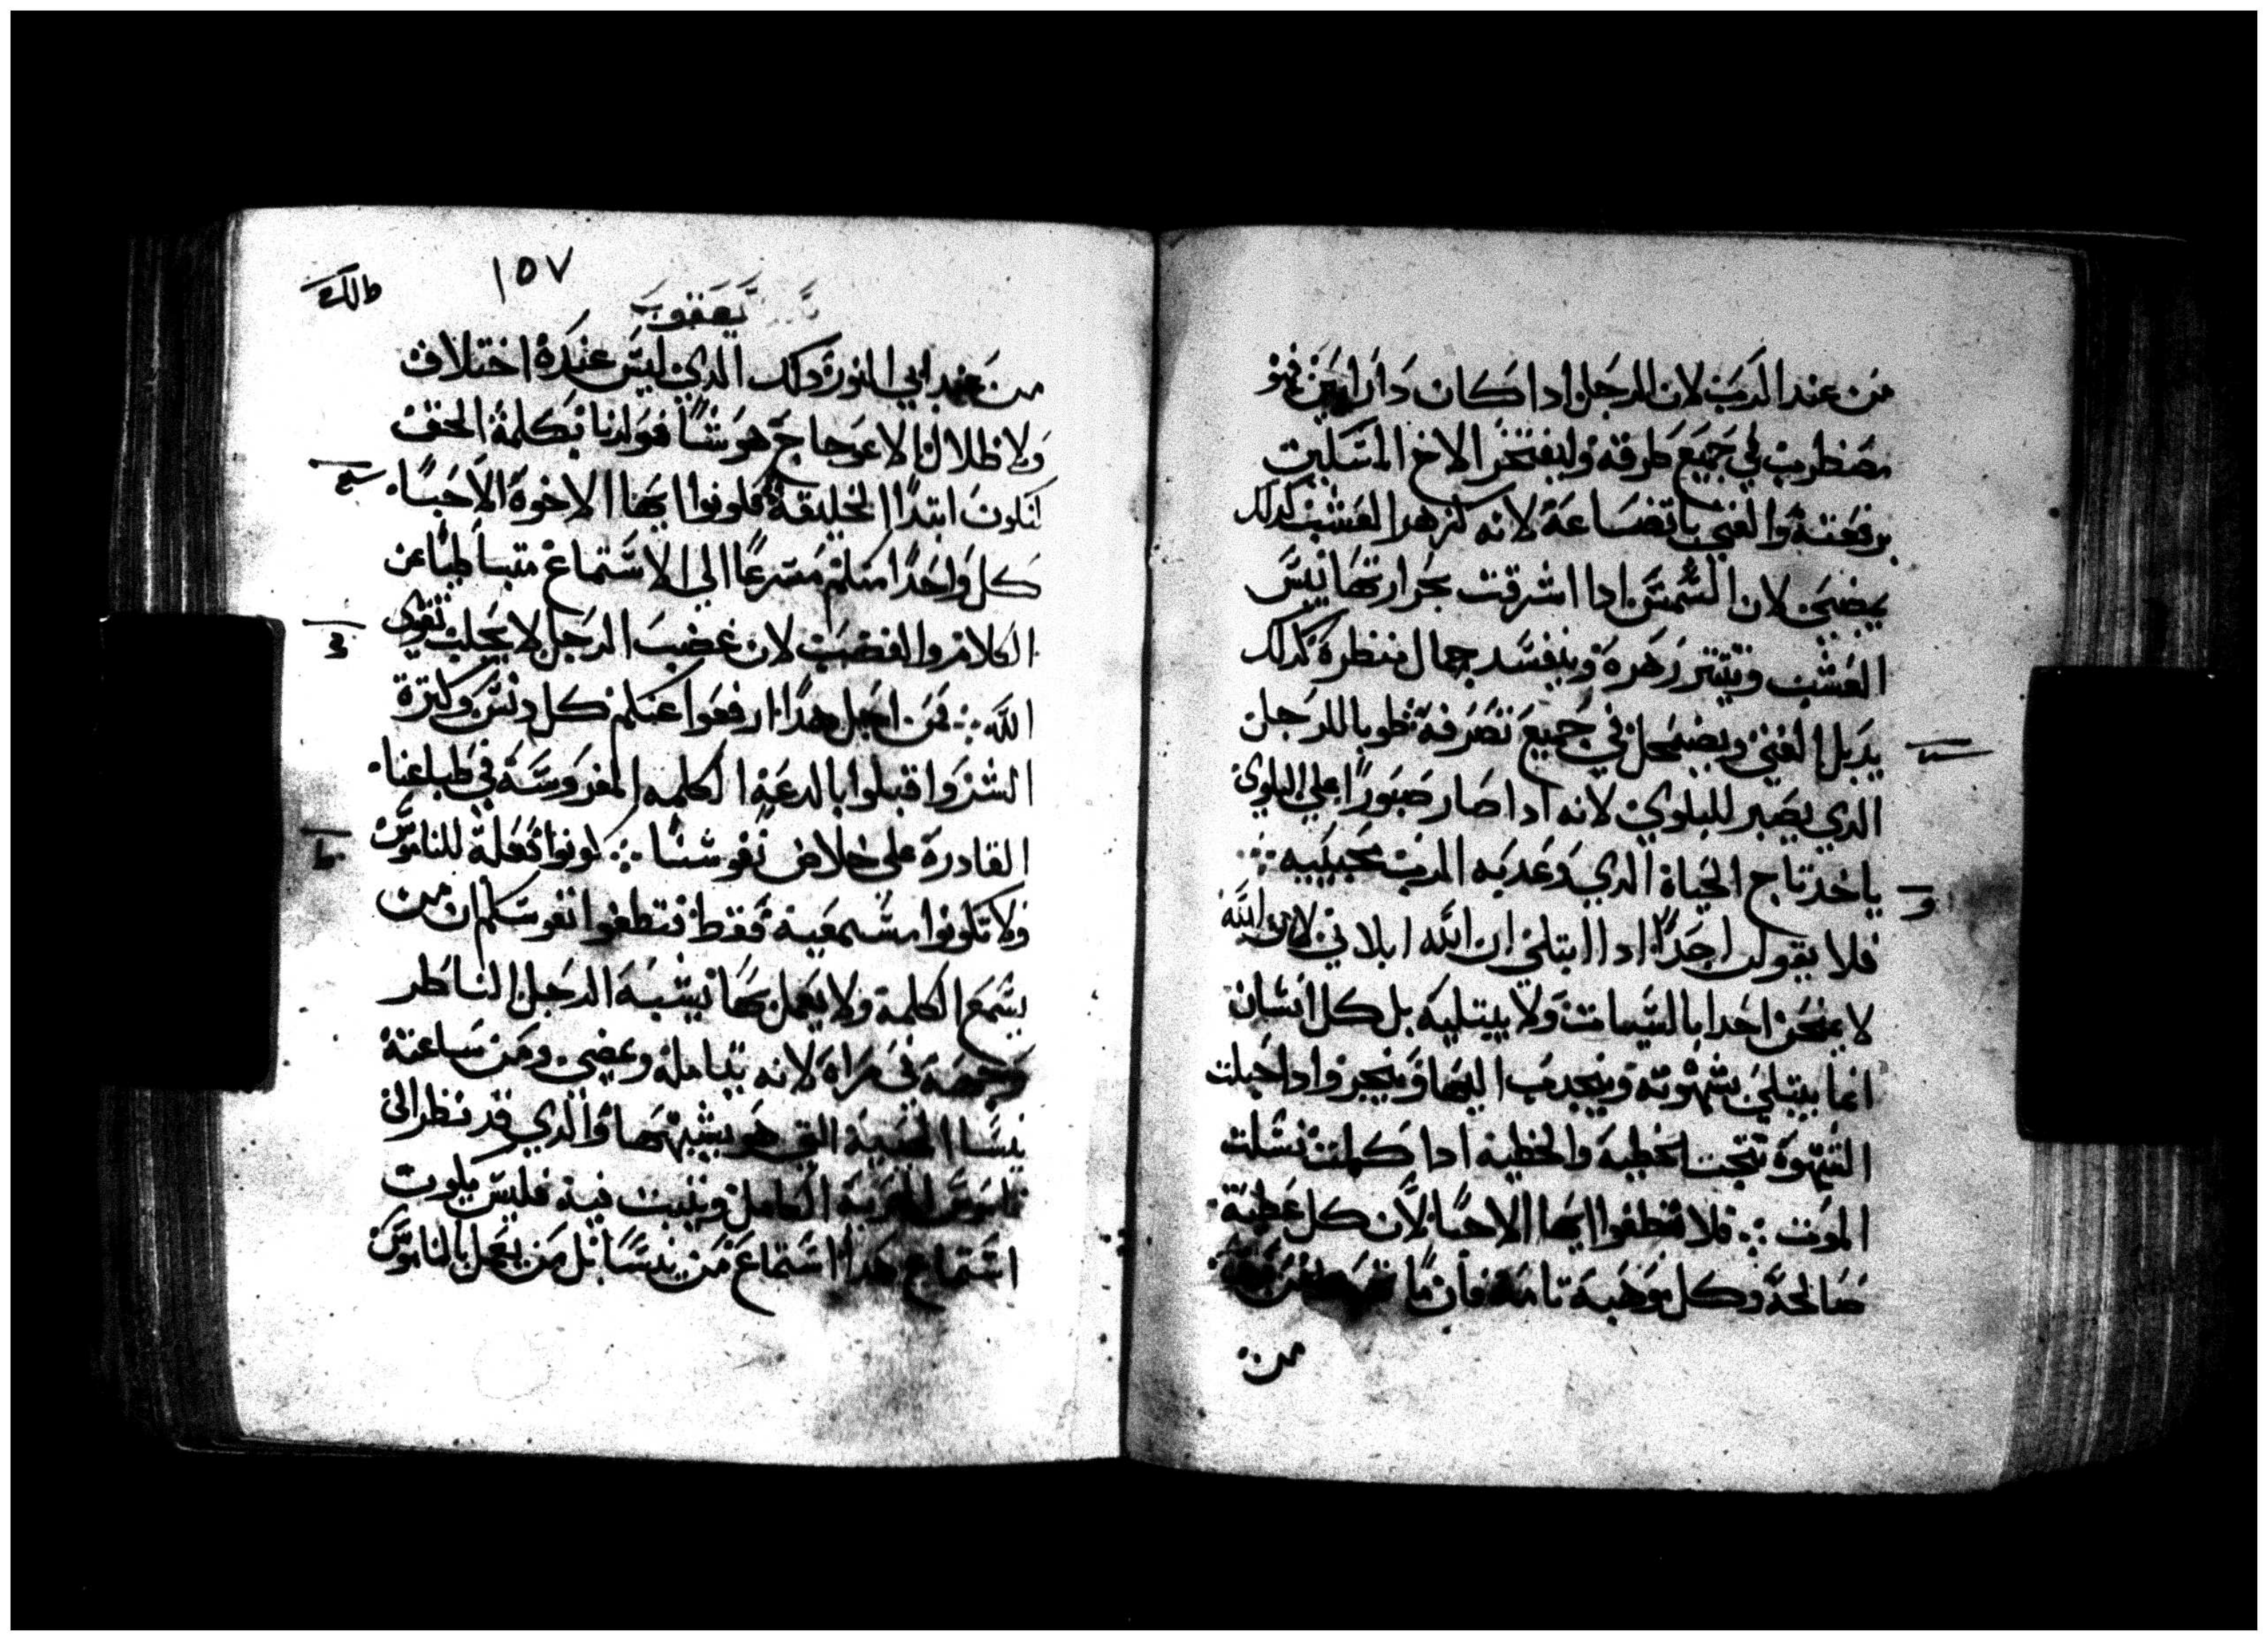 من عند الرب لان الرجل ادا كان دا رايين فهو
مضطرب في جميع طرقه وليفتخر الاخ المسكين
برفعته والغني باتضاعه لانه كزهر العشب كدلك
يمضي لان الشمس ادا اشرقت بحرارتها يبس
العشب وينتتر زهره ويفسد جمال منظره كدلك
يدبل الغني ويضمحل في جميع تصرفه طوبا للرجل
الدي يصبر للبلوي لانه ادا صار صبورا علي البلوي
ياخد تاج الحياة الدي وعد به الرب محبيه
فلا يقولن احدا ادا ابتلي ان الله ابلاني لان الله
لا يمتحن احدا بالسيات ولا يبتليه بل كل انسان
انما يبتلي بشهوته وينجدب اليها وينجر وادا حبلت
الشهوة نتجت الخطيه والخطيه ادا كملت نسلت
الموت فلا تطغوا ايها الاحبا لان كل عطية
صالحة وكل موهبة تامة فان
من
١٥٧
يعقوب
من عند ابي النور دلك الدي ليس عنده اختلاف
ولا ظلال لانه لا عوجاج هو شا فولدنا بكلمة الحق
لنكون ابتدا الخليقة فكونوا ايها الاخوة الاحبا
كل واحدا منكم مسرعا الي الاستماع متباطيا عن
الكلام والغضب لان غضب الرجل لا يجلب تقوي
الله فمن اجل هدا ارفعوا عنكم كل دنس وكترة
الشر واقبلوا بالدعه الكلمه المغروسة في طباعنا
القادرة علي خلاص نفوسنا كونوا فعلة للناموس
ولا تكونوا مستمعيه فقط فتطغوا نفوسكم ان من
يسمع الكلمة ولا يعمل بها يشبه الرجل الناظر
وجهه في مراة لانه يتامله ويمضي ومن ساعته
ينسا الهيية التي هو يشبهها والدي قد نظر الي
ناموس الحرية الكامل ويتبت فيه فليس يكون
استماع هدا استماع من ينسا بل من يعمل بالناموس